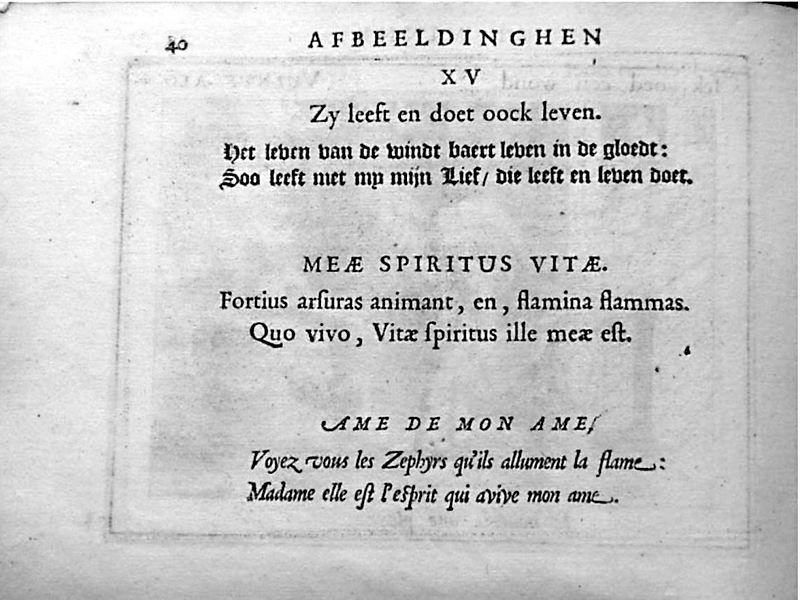 40 AFBEELDINGHEN
XV
Zy leeft en doet oock leven.
Het leven van de windt baert leven in de gloedt:
Soo leeft met my mijn Lief/ die leeft en leven doet.
MEÆ SPIRITUS VITÆ.
Fortius arſuras animant, en, flamina flammas.
Quo vivo, Vitæ ſpiritus ille meæ eſt.
AME DE MON AME,
Voyez vous les Zephyrs qu'ils allument la flame:
Madame elle eſt l'eſprit qui avive mon ame.